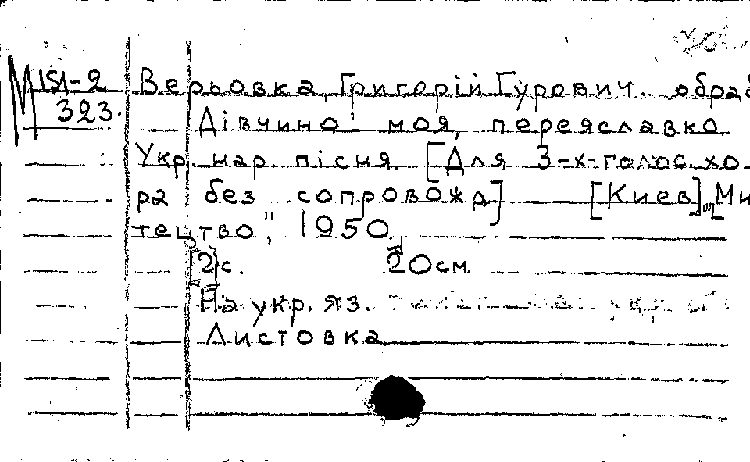 М 151-2
323.
Верьовка, Григорій Гурович. обраб
Дівчино моя, переяславко
Укр. нар. пісня. [Для 3-х-голос. хо-
ра без сопровожд] [Киев], "Ми
тецтво", 1950.
[2]с. 20 см.
На укр. яз. укр.
Листовка